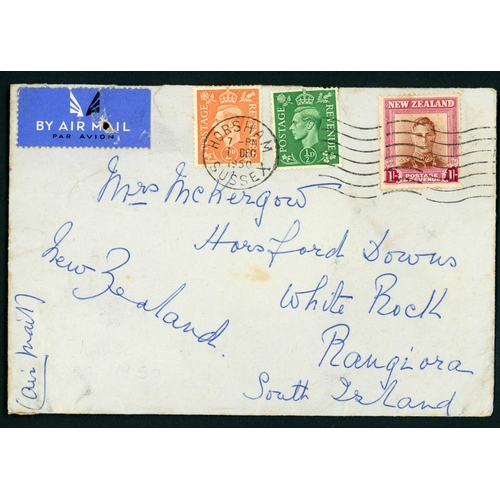 BY AIR MAIL
PAR AVION
POSTAGE REVENUE
POSTAGE REVENUE
½D
HORSHAM
7 - PM
DEC
1950
SUSSEX
NEW ZEALAND
1/- POSTAGE & REVENUE 1/-
Mrs McKergow
Horsford Downs
White Rock
Rangiora
South Island
New Zealand.
(air mail)